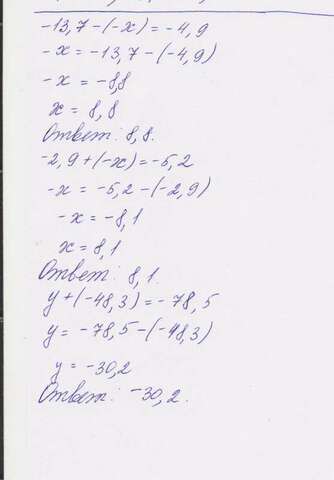 -13,7-(-x)=-4,9
-x=-13,7-(-4,9)
-x=-8,8
x=8,8
Ответ: 8,8.
-2,9+(-x)=-5,2
-x=-5,2-(-2,9)
-x=-8,1
x=8,1
Ответ: 8,1.
y+(-48,3)=-78,5
y=-78,5-(-48,3)
y=-30,2
Ответ: -30,2.